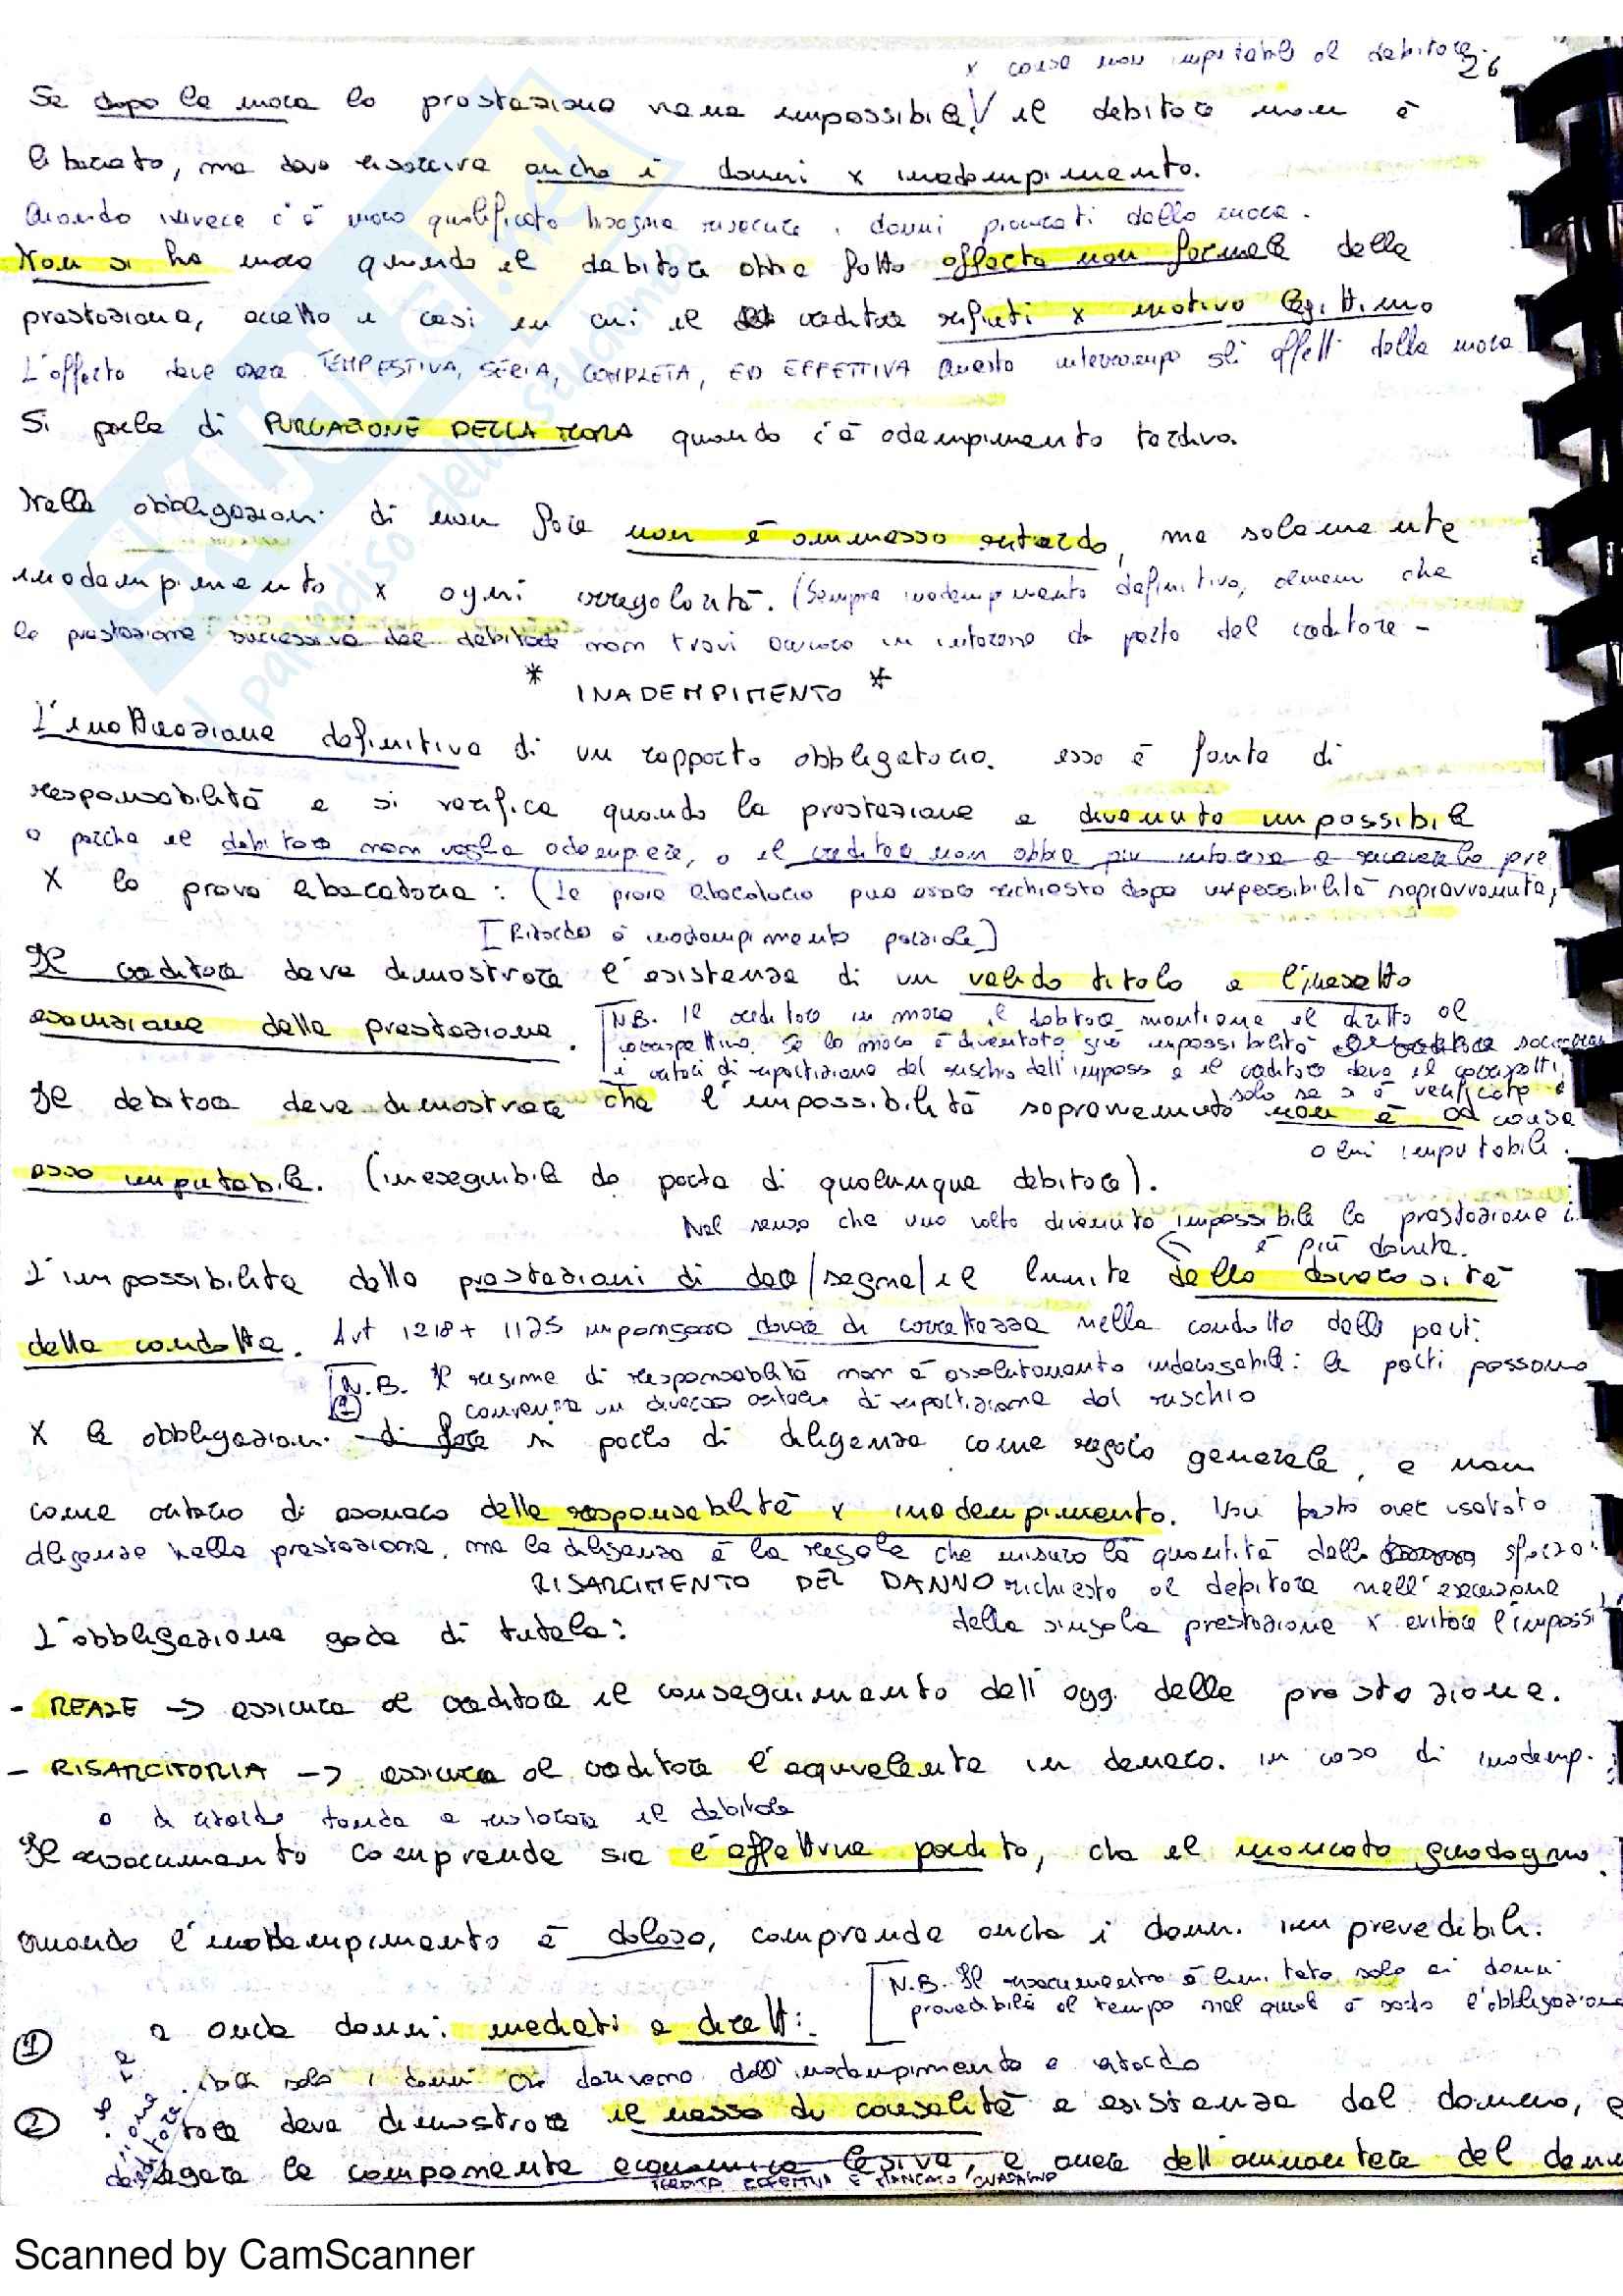 x cause non imputabili al debitore.
26
Se dopo la mora la prestazione viene impossibile il debitore non è
liberato, ma deve risarcire anche i danni x inadempimento.
Quando invece c'è mora qualificata bisogna risarcire i danni provocati dalla mora.
Non si ha mora quando il debitore abbia fatto offerta non formale della
prestazione, eccetto i casi in cui il creditore rifiuti x motivo legittimo
L'offerta deve essere TEMPESTIVA, SERIA, COMPLETA, ED EFFETTIVA Questo interrompe gli effetti della mora
Si parla di PURGAZIONE DELLA MORA quando c'è adempimento tardivo.
Nelle obbligazioni di non fare non è ammesso ritardo, ma solamente
inadempimento x ogni irregolarità. (Sempre inadempimento definitivo, almeno che
la prestazione successiva del debitore non trovi ancora un interesse da parte del creditore -
* INADEMPIMENTO *
L'inattuazione definitiva di un rapporto obbligatorio. esso è fonte di
responsabilità e si verifica quando la prestazione e divenuta impossibile
o perche il debitore non voglia adempiere, o il creditore non abbia piu interesse a riceverla pre
X la prova liberatoria: (la prova liberatoria puo essere richiesta dopo impossibilità sopravvenuta,
[Ritardo è inadempimento parziale]
Il creditore deve dimostrare l'esistenza di un valido titolo e l'inesatta
esecuzione della prestazione.
N.B. Il creditore in mora il debitore mantiene il diritto al
corrispettivo. Se la mora è diventata già impossibilità
i criteri di ripartizione del rischio dell'imposs e il creditore deve il
solo se si è verificata x
Il debitore deve dimostrare che l'impossibilità sopravvenuta non è ad causa
a lui imputabile.
esso imputabile. (ineseguibile da parte di qualunque debitore).
Nel senso che una volta divenuta impossibile la prestazione
è più dovuta.
L'impossibilita delle prestazioni di dare/segna/il limite della doverosità
della condotta. Art 1218+ 1175 impongono dovere di correttezza nella condotta delle parti.
N.B. Il regime di responsabilità non è assolutamente inderogabile: le parti possono
(1) convenire un diverso criterio di ripartizione del rischio
X le obbligazioni di fare si parla di diligenza come regola generale, e non
come criterio di esonero della responsabilità x inadempimento. Non basta aver usato
diligenza nella prestazione, ma la diligenza è la regola che misura la quantità dello sforzo
RISARCIMENTO DEL DANNO richiesto al debitore nell'esecuzione
della singola prestazione x evitare l'impossi
L'obbligazione gode di tutela:
- REALE -> assicura al creditore il conseguimento dell'ogg. della prestazione.
- RISARCITORIA -> assicura al creditore l'equivalente in denaro. in caso di inademp.
o di ritardo tende a ristorare il debitore
Il risarcimento comprende sia l'effettiva perdita, che il mancato guadagno.
Quando l'inadempimento è doloso, comprende anche i danni imprevedibili.
N.B. Il risarcimento è limitato solo ai danni
prevedibili al tempo nel quale è sorta l'obbligazione
(1) e anche danni: mediati e diretti:
solo i danni che derivano dall'inadempimento e ritardo
(2) deve dimostrare il nesso di causalità e esistenza del danno, e
la componente economica lesiva, e onere dell'ammontare del dann
PERDITA EFFETTIVA E MANCATO GUADAGNO
SKUOLA.net
il paradiso dello studente
Scanned by CamScanner